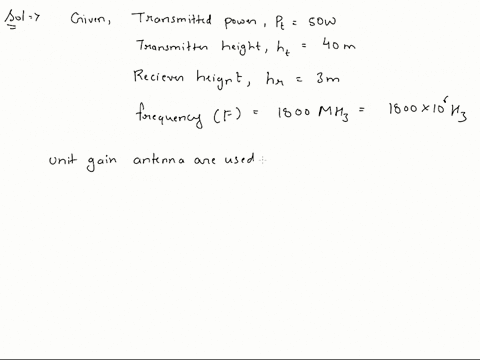 Sol⇒ Given, Transmitted power, Pt = 50W
Transmitter height, ht = 40m
Reciever heignt, hr = 3m
frequency (F) = 1800 MHz = 1800×10⁶ Hz
unit gain antenna are used